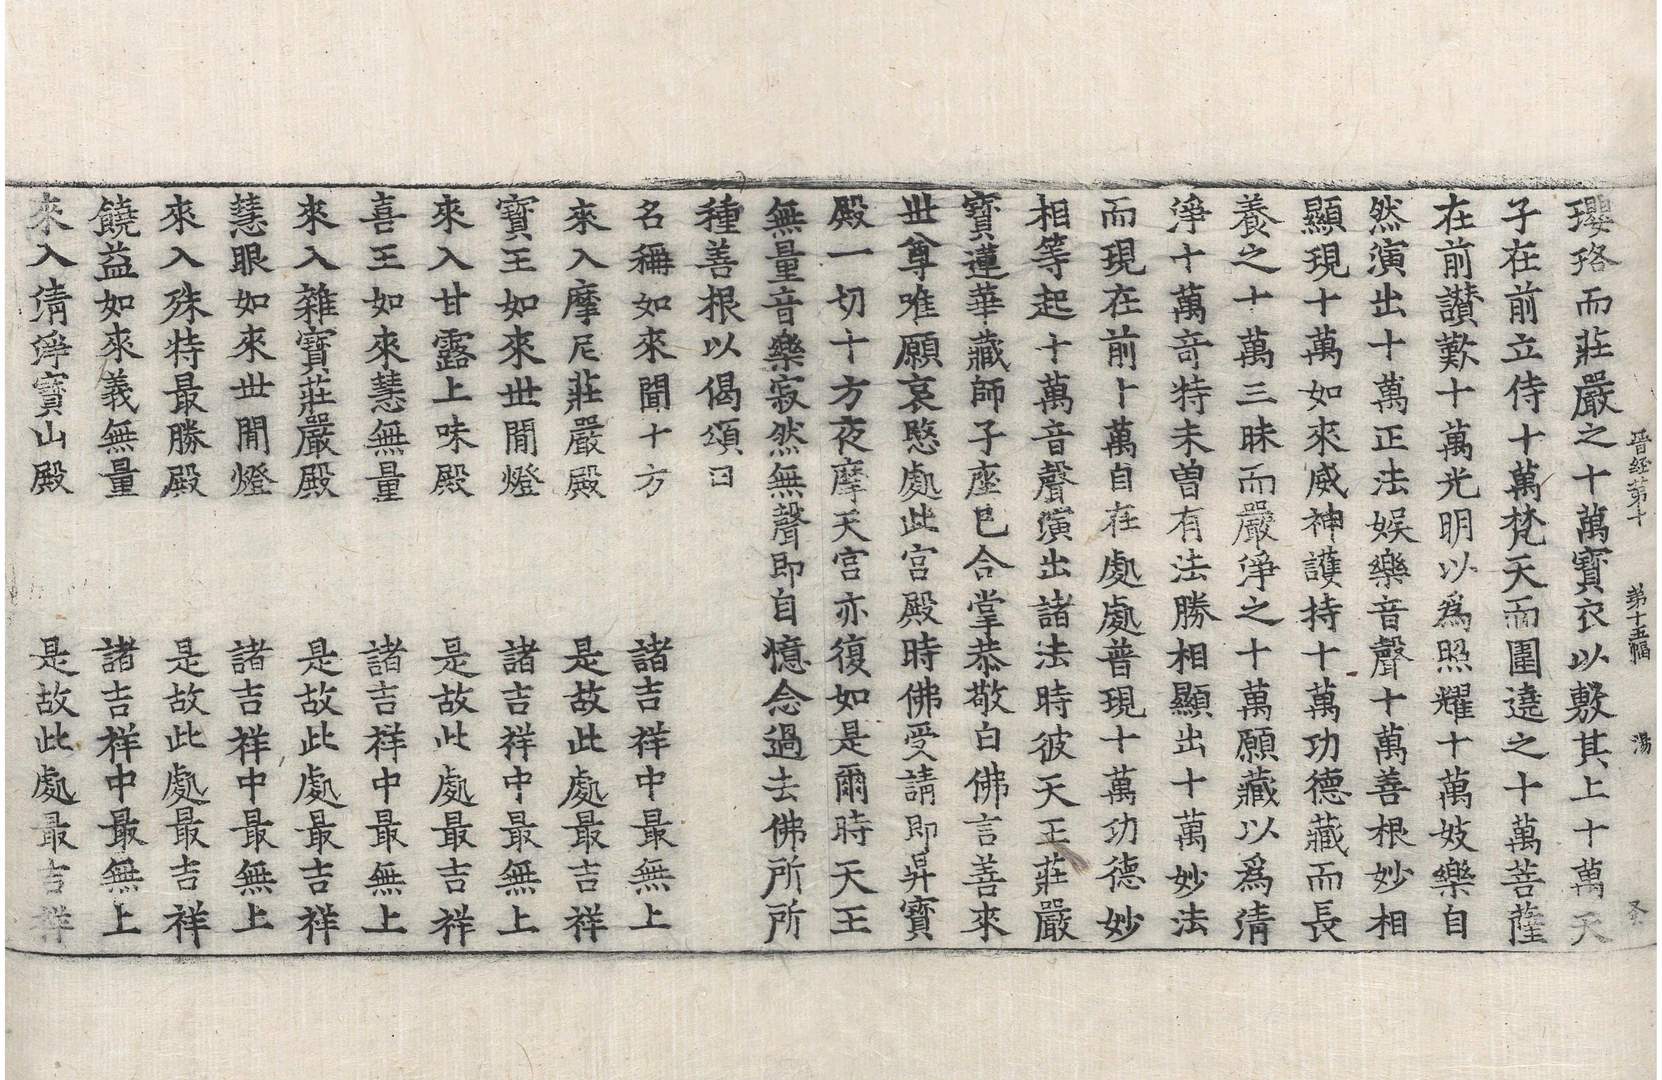 晉經第十 第十五幅 湯
瓔珞而莊嚴之十萬寶衣以敷其上十萬天
子在前立侍十萬梵天而圍遶之十萬菩薩
在前讃歎十萬光明以爲照耀十萬妓樂自
然演出十萬正法娯樂音聲十萬善根妙相
顯現十萬如來威神護持十萬功德藏而長
養之十萬三昧而嚴淨之十萬願藏以爲清
淨十萬竒特未曽有法勝相顯出十萬妙法
而現在前十萬自在處處普現十萬功德妙
相等起十萬音聲演出諸法時彼天王莊嚴
寶蓮華藏師子座已合掌恭敬白佛言善來
世尊唯願哀愍處此宮殿時佛受請即昇寶
殿一切十方夜摩天宮亦復如是爾時天王
無量音樂寂然無聲即自憶念過去佛所所
種善根以偈頌曰
名稱如來聞十方 諸吉祥中最無上
來入摩尼莊嚴殿 是故此處最吉祥
寶王如來世間燈 諸吉祥中最無上
來入甘露上味殿 是故此處最吉祥
喜王如來慧無量 諸吉祥中最無上
來入雜寶莊嚴殿 是故此處最吉祥
慧眼如來世間燈 諸吉祥中最無上
來入殊特最勝殿 是故此處最吉祥
饒益如來義無量 諸吉祥中最無上
來入清淨寶山殿 是故此處最吉祥